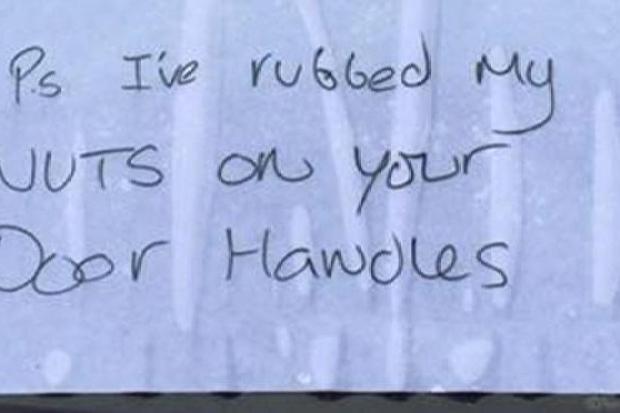 P.s I've rubbed My
NUTS on your
Door Handles